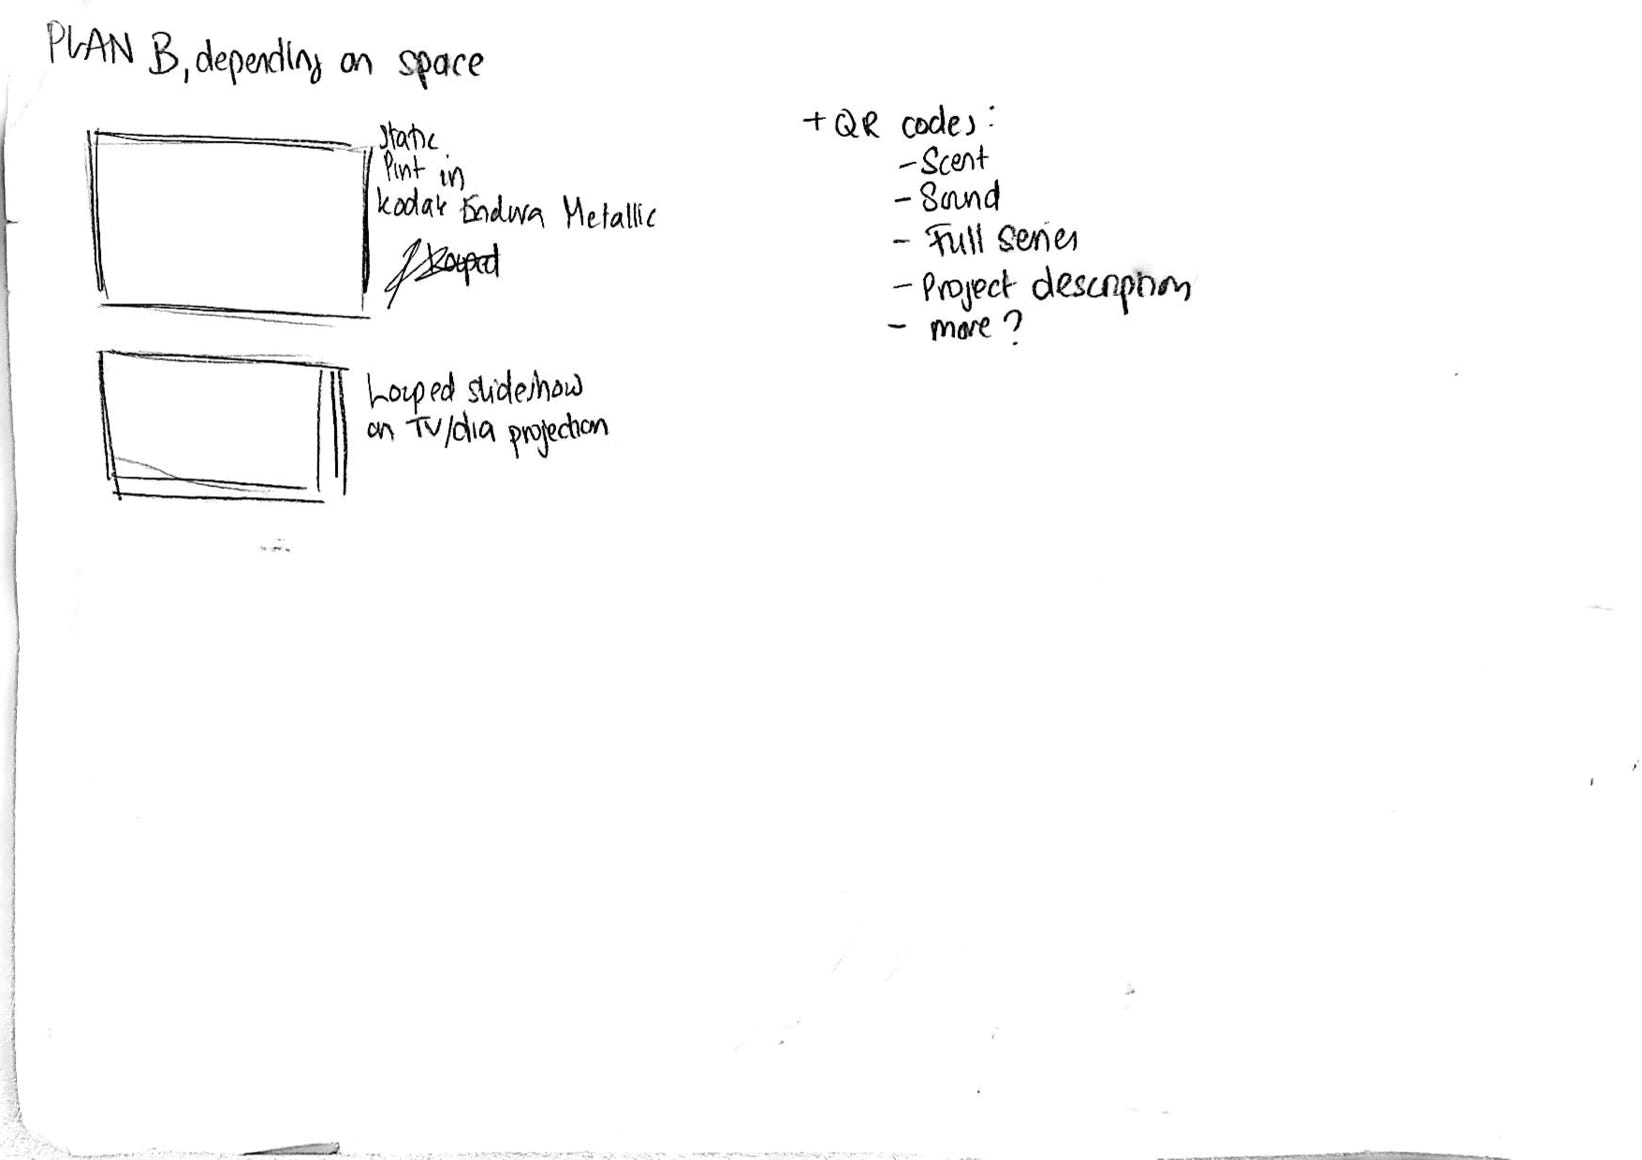 PLAN B, depending on space
static
Print in
Kodak Endura Metallic
Looped
Looped slideshow
on TV/dia projection
+ QR codes:
- Scent
- Sound
- Full series
- Project description
- more?